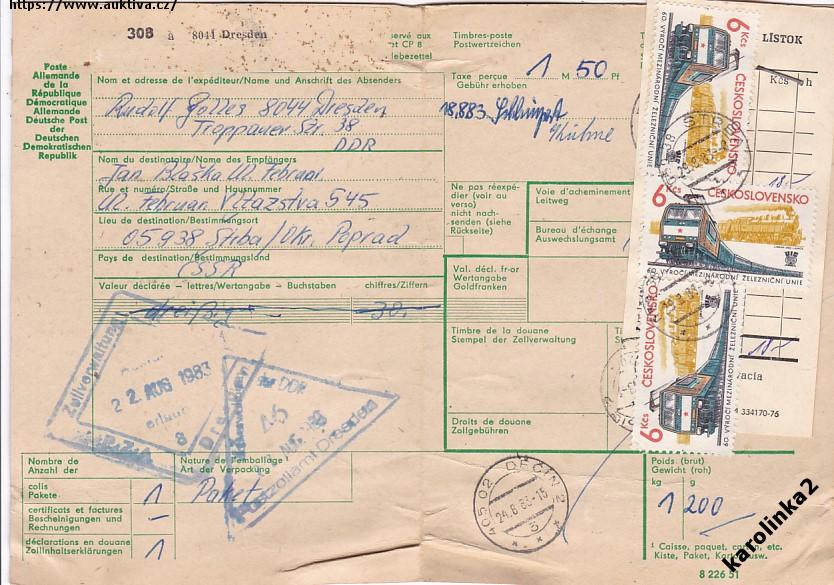 https://www.auktiva.cz/
308 à 8044 Dresden
Poste
Allemande
de la
République
Démocratique
Allemande
Deutsche Post
der
Deutschen
Demokratischen
Republik
Nom et adresse de l'expéditeur/Name und Anschrift des Absenders
Rudolf 8044 Dresden
Troppauer Str. 38
DDR
Nom du destinataire/Name des Empfängers
Jan Blaška Ul. Februar
Rue et numéro/Straße und Hausnummer
Ul. Februar Vítazstva 545
Lieu de destination/Bestimmungsort
05938 Štrba/Okr. Poprad
Pays de destination/Bestimmungsland
ČSSR
Valeur déclarée - lettres/Wertangabe - Buchstaben chiffres/Ziffern
dreißig 30,-
Zollverwaltung
22. AUG 1983
8
der DDR
Postzollamt Dresden
Nombre de
Anzahl der
Nature de l'emballage ¹
Art der Verpackung
colis
Pakete 1 Paket
certificats et factures
Bescheinigungen und
Rechnungen –
déclarations en douane
Zollinhaltserklärungen 1
servé aux
t CP 8
lebezettel
Timbres-poste
Postwertzeichen
Taxe perçue
Gebühr erhoben 1 M 50 Pf
18.8.83
Kühne
Ne pas réexpé-
dier (voir au
verso)
nicht nach-
senden (siehe
Rückseite)
Voie d'acheminement
Leitweg
Bureau d'échange
Auswechslungsamt
Val. décl. fr-or
Wertangabe
Goldfranken
Timbre de la douane
Stempel der Zollverwaltung
Droits de douane
Zollgebühren
405 02 DĚČÍN 2
24.8.83-15
3
6 Kčs
ČESKOSLOVENSKO
60. VÝROČÍ MEZINÁRODNÍ ŽELEZNIČNÍ UNIE
6 Kčs
ČESKOSLOVENSKO
60. VÝROČÍ MEZINÁRODNÍ ŽELEZNIČNÍ UNIE
6 Kčs
ČESKOSLOVENSKO
60. VÝROČÍ MEZINÁRODNÍ ŽELEZNIČNÍ UNIE
LÍSTOK
Kčs h
18.-
18.-
4 334170-76
Poids (brut)
Gewicht (roh)
kg g
1 200
¹ Caisse, paquet, carton, etc.
Kiste, Paket, Karton usw.
8 226 51
karolinka2